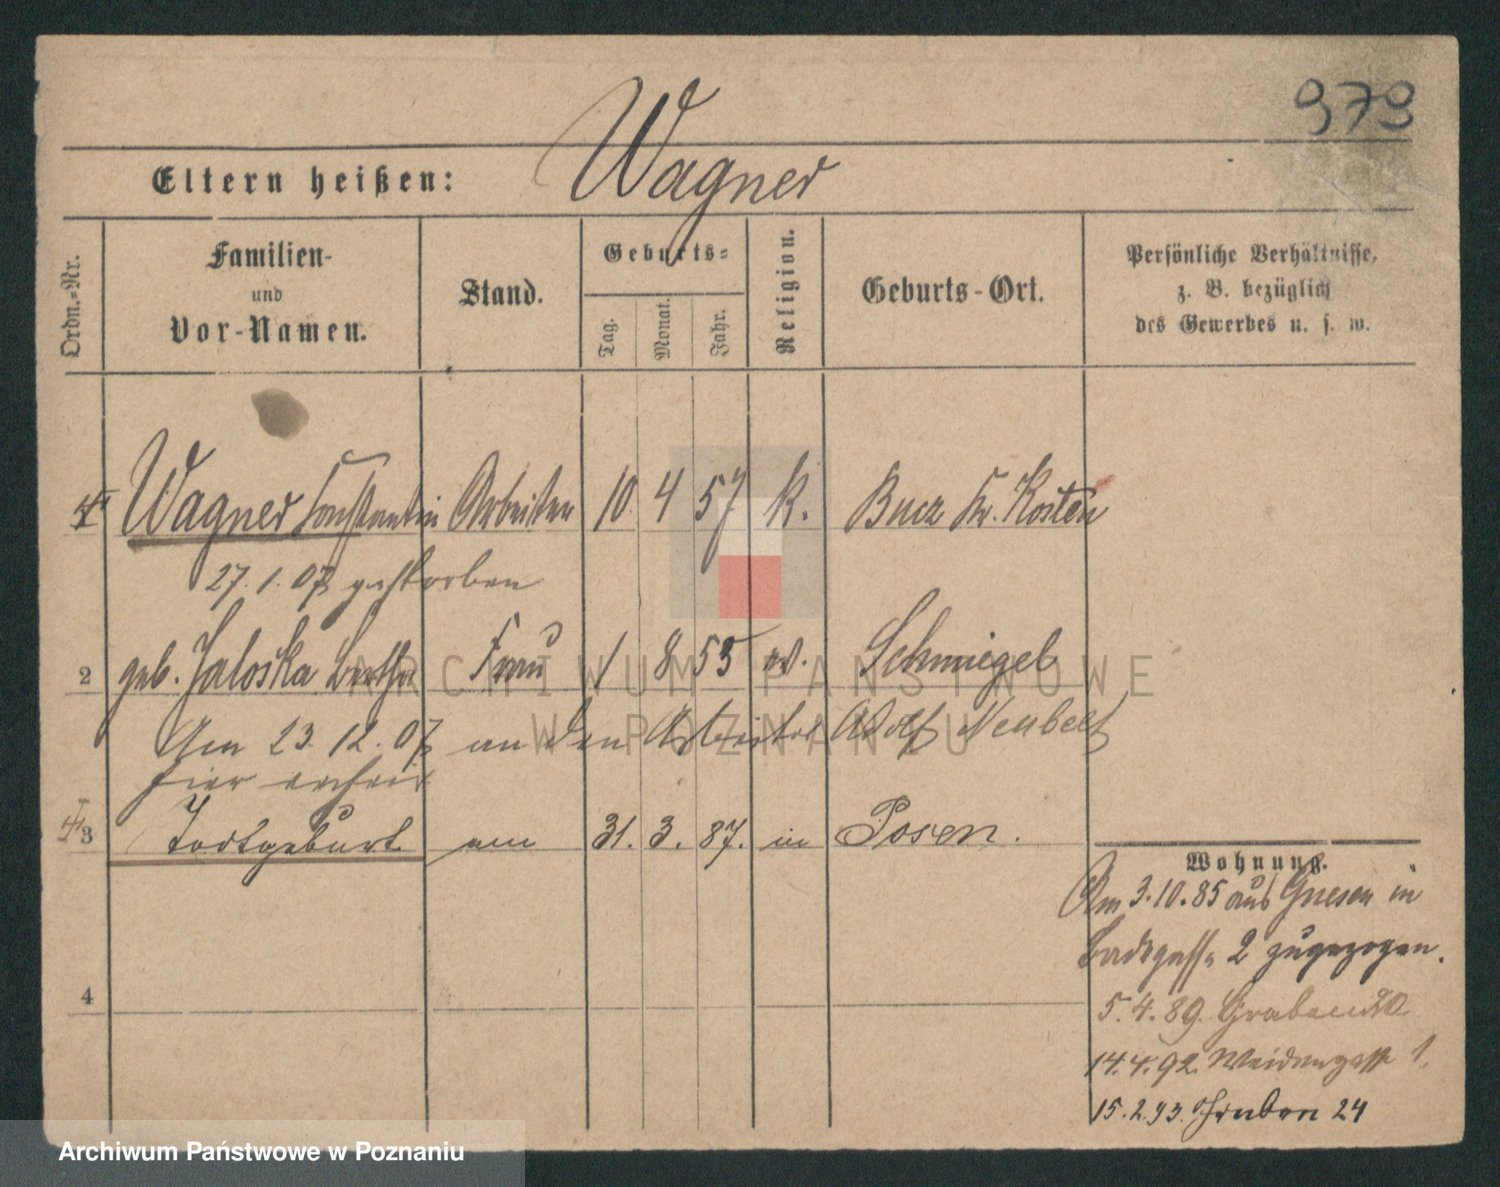 979
Eltern heißen: Wagner
Ordn.-Nr.
Familien- und Vor-Namen.
Stand.
Geburts-
Tag.
Monat.
Jahr.
Religion.
Geburts-Ort.
Persönliche Verhältnisse, z. B. bezüglich des Gewerbes u. s. w.
1 Wagner Constantin Arbeiter 10 4 57 k. Bucz Kr. Kosten
27.1.07 gestorben
2 geb. Jaloska Bertha Frau 1 8 55 ev. Schmiegel
Am 23.12.07 an den Arbeiter Adolf Neubelt
hier verheir
3 Todtgeburt am 31. 3. 87. in Posen.
4
Wohnung.
Am 3.10.85 aus Gnesen in
Badegasse 2 zugezogen.
5.4.89. Graben 20
14.4.92. Weidengasse 1.
15.2.93. Graben 24
ARCHIWUM PAŃSTWOWE
W POZNANIU
Archiwum Państwowe w Poznaniu